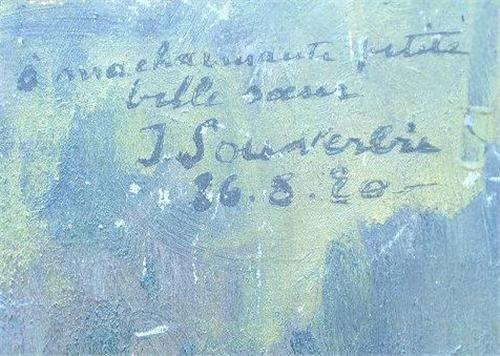 à ma charmante petite
belle soeur
J. Souverbie
26.8.20-